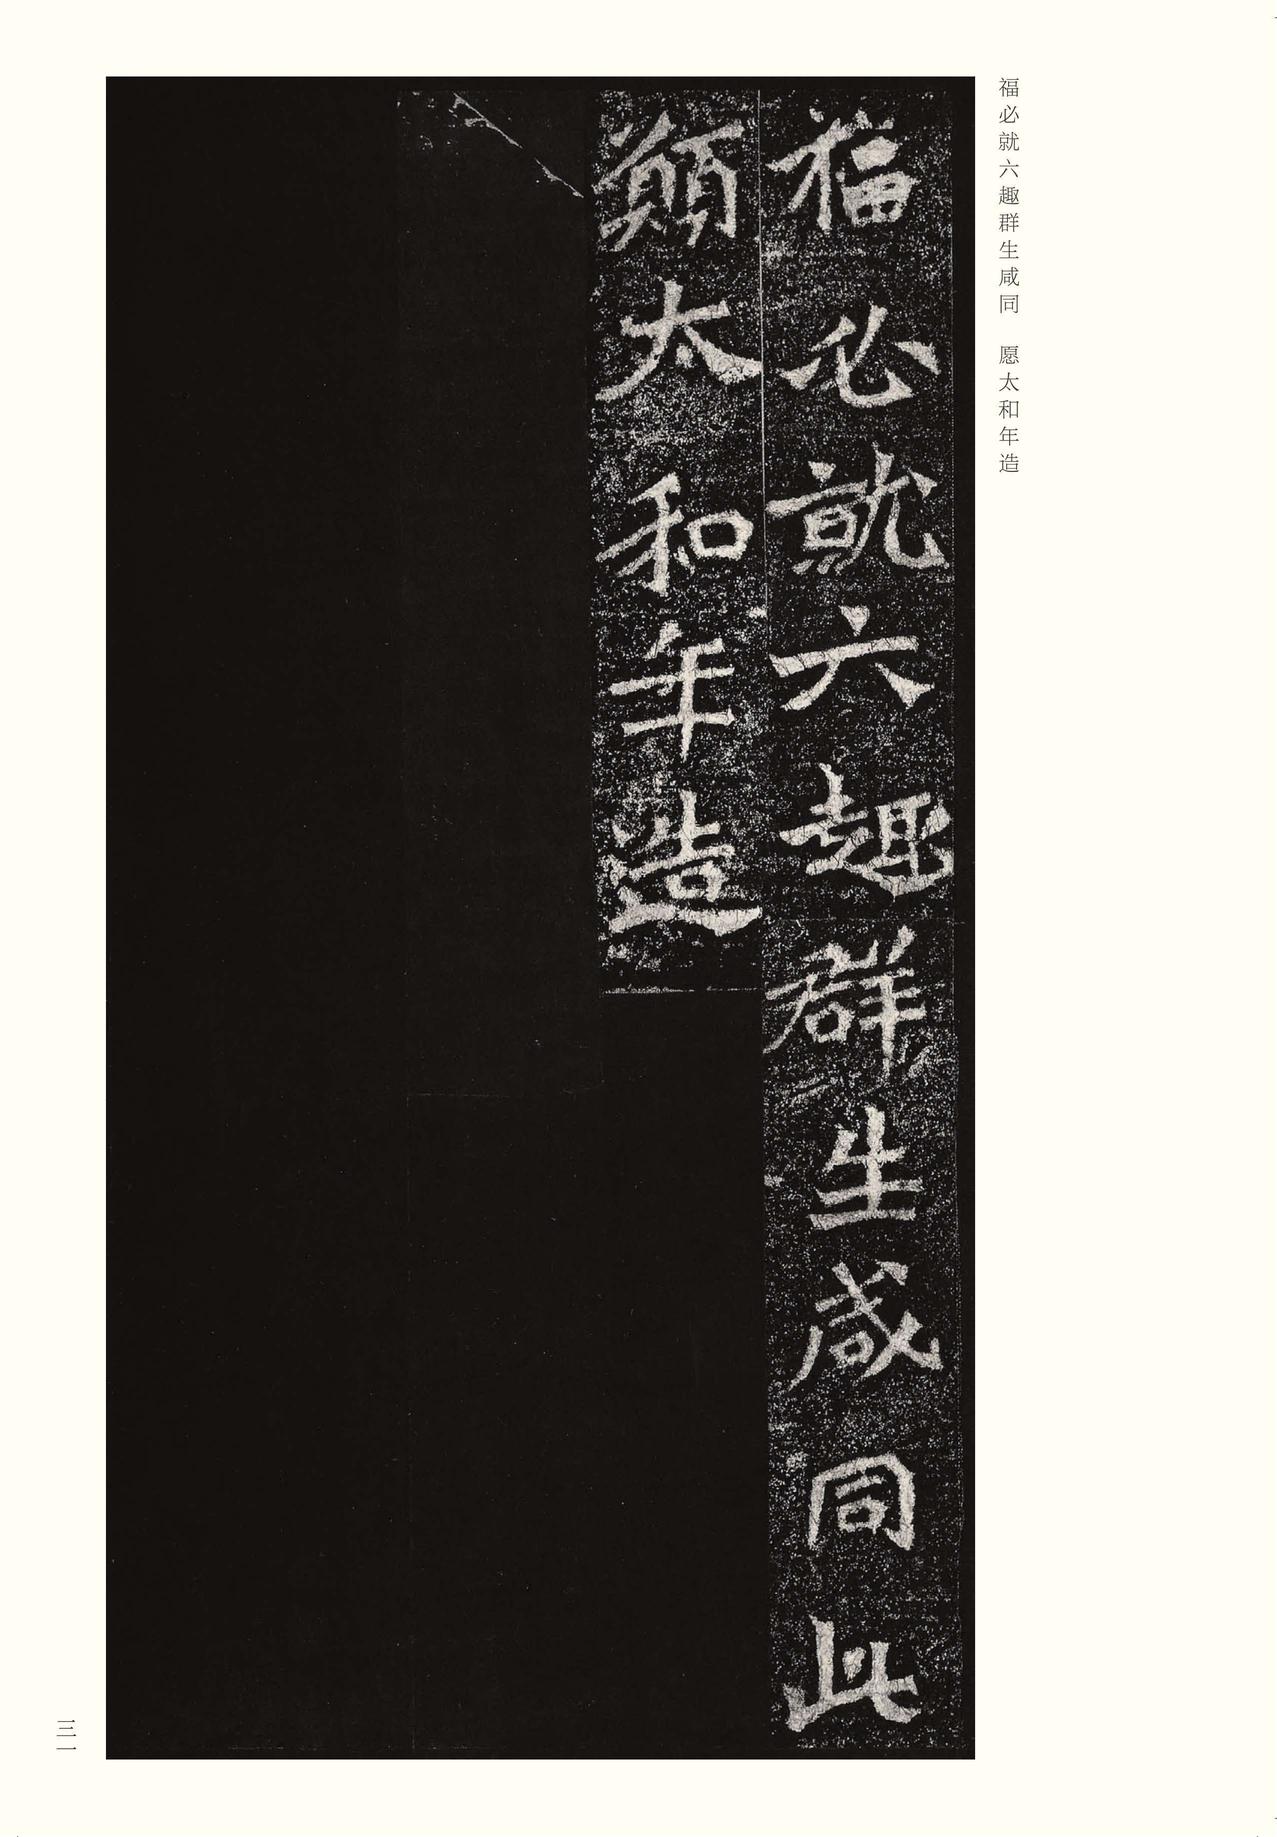 福必就六趣群生咸同　愿太和年造
福必就六趣群生咸同此
願太和年造
三一